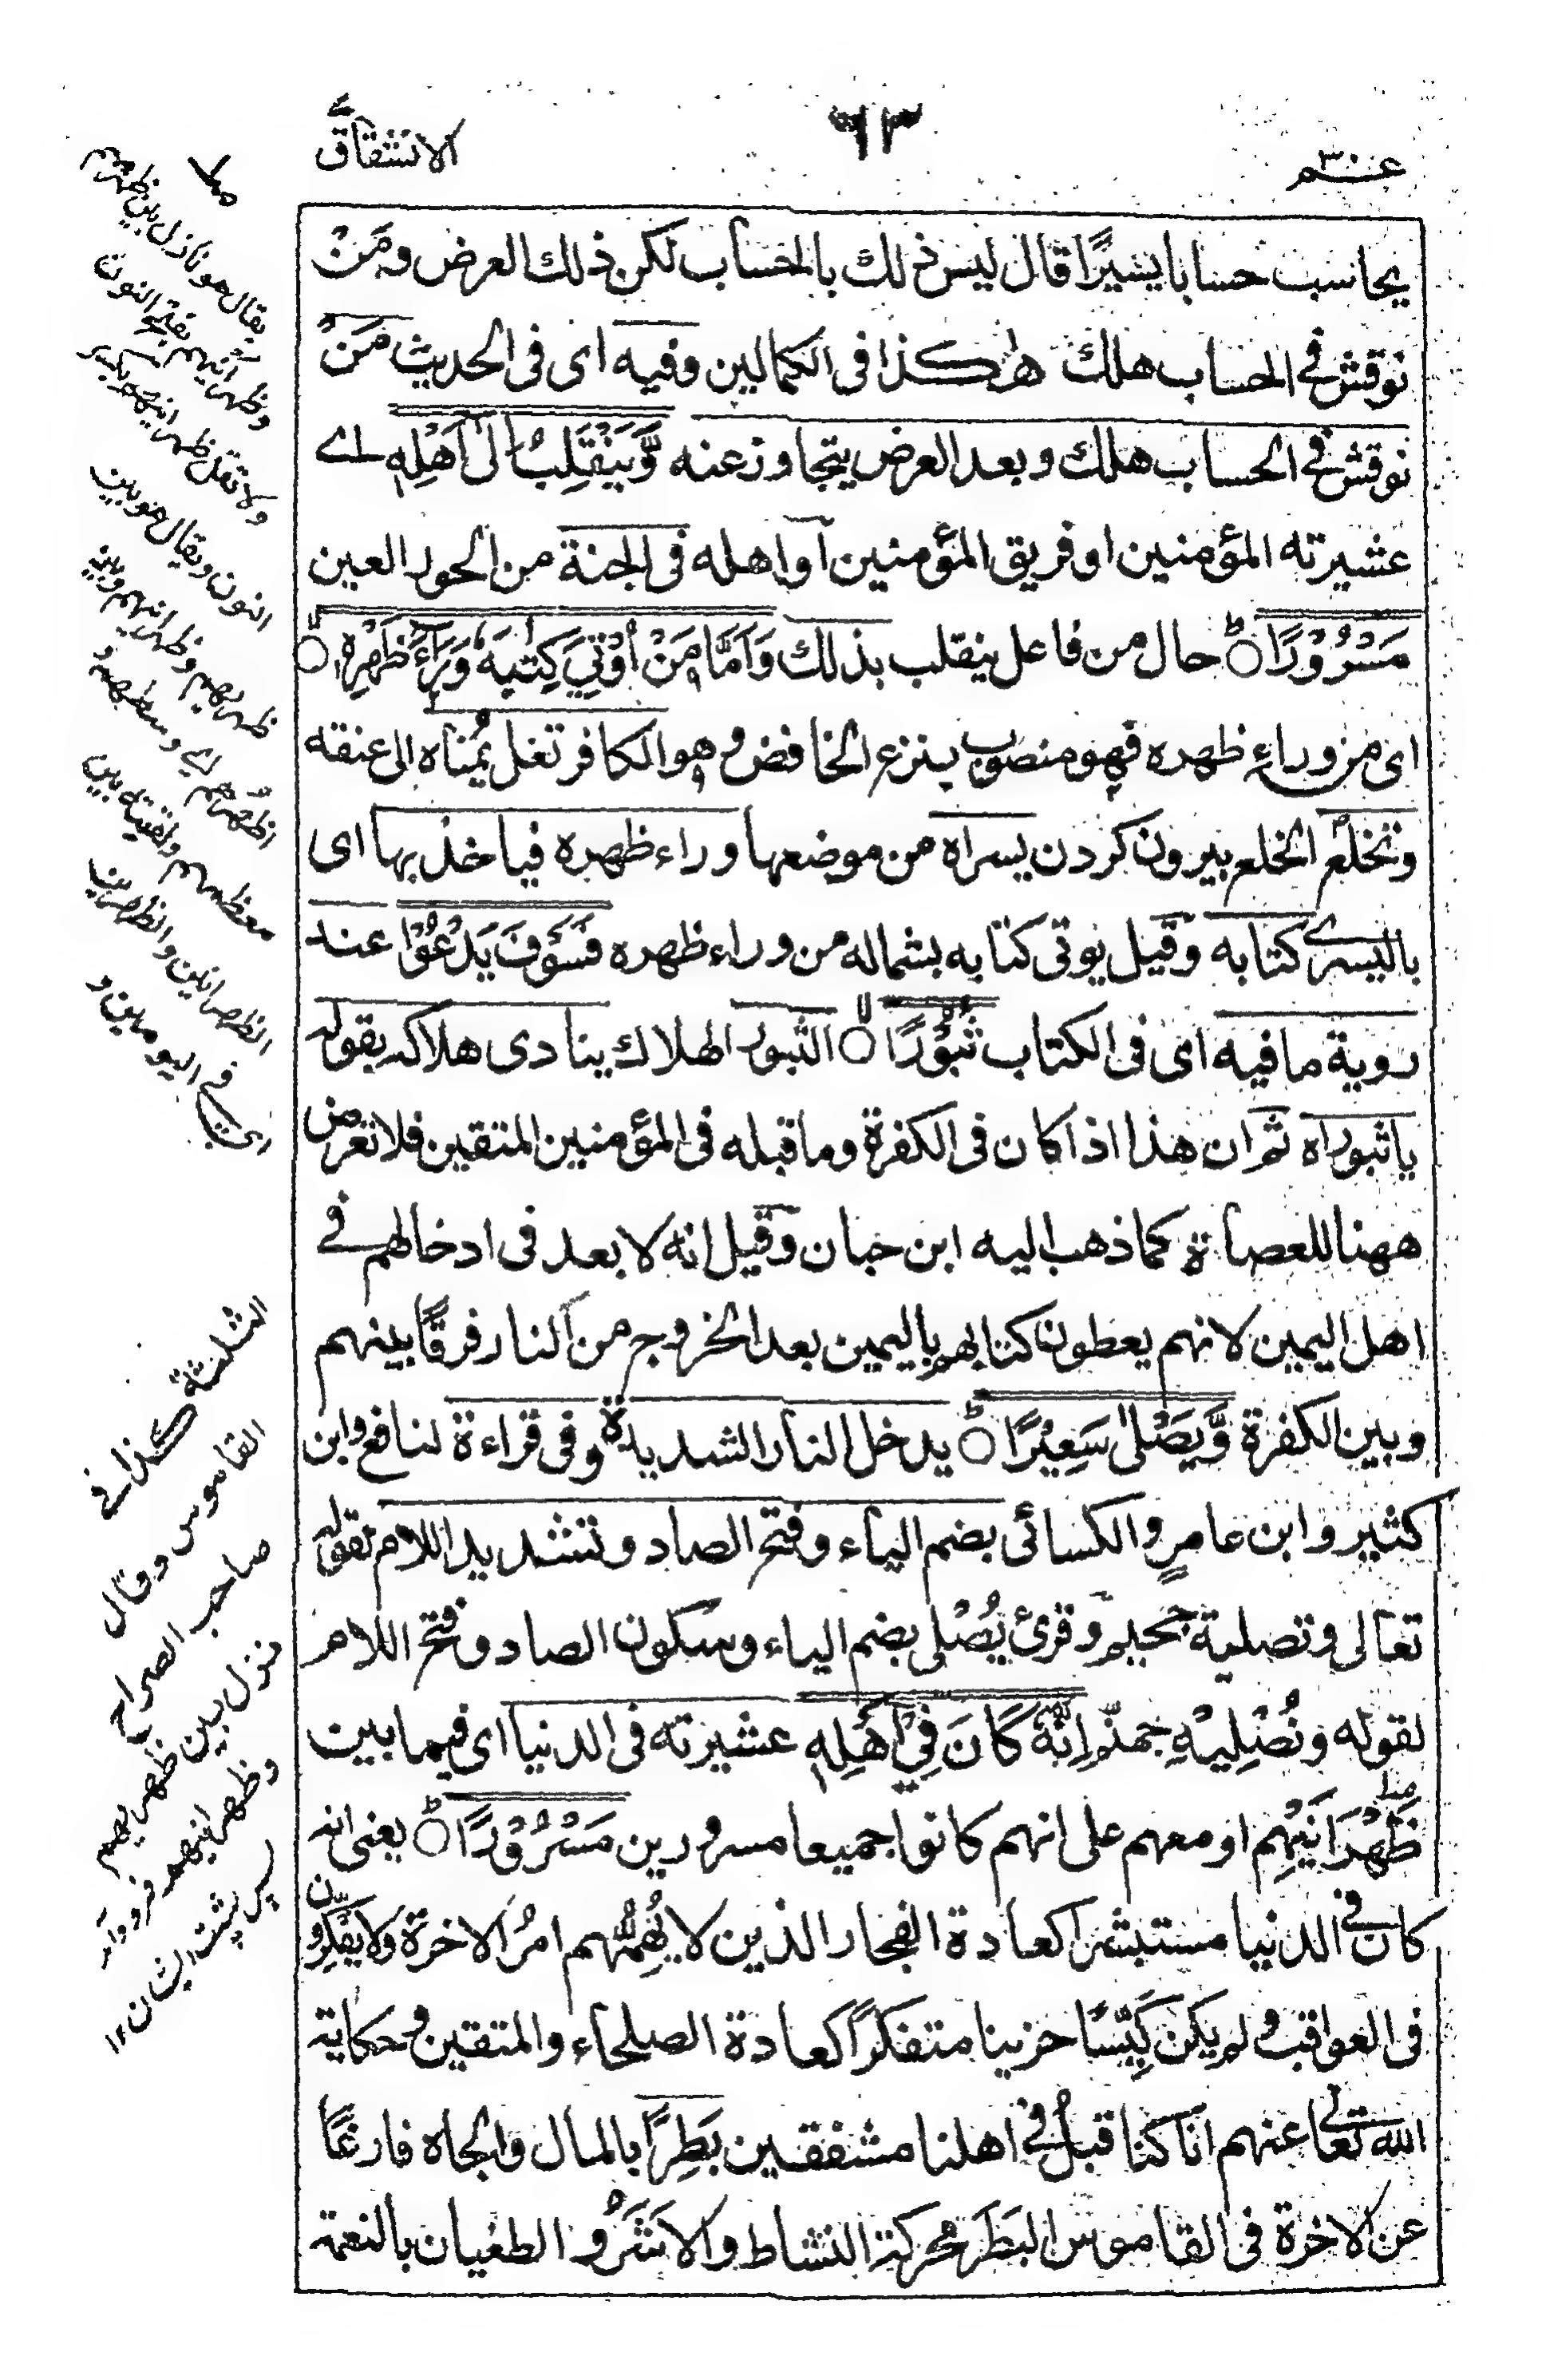 عم ٣٠
٦٣
الانشقاق
يحاسب حسابا يسيرًا قال ليس ذلك بالحساب لكن ذلك العرض ومَنْ
نوقش في الحساب هلك هكذا فى الكمالين وفيه اى فى الحديث مَنْ
نوقش في الحساب هلك وبعد العرض يتجاوز عنه وَّيَنْقَلِبُ اِلٰى اَهْلِهٖ اے
عشيرته المؤمنين او فريق المؤمنين او اهله فى الجنة من الحور العين
مَسْرُوْرًا ۞ حال من فاعل ينقلب بذلك وَاَمَّا مَنْ اُوْتِيَ كِتٰبَهٗ وَرَآءَ ظَهْرِهٖ ۞
اى من وراءِ ظهره فهو منصوب بنزع الخافض وهو الكافر تغل يُمناه الى عنقه
وتخلع الخلع بيرون كردن يسراه من موضعها وراء ظهره فياخذ بها اى
باليسرے كتابه وقيل يوتى كتابه بشماله من وراء ظهره فَسَوْفَ يَدْعُوْا عند
روية ما فيه اى فى الكتاب ثُبُوْرًا ۞ الثبور الهلاك ينادى هلاكه بقوله
يا ثبوراه ثم ان هذا اذا كان فى الكفرة وما قبله فى المؤمنين المتقين فلا تعرض
ههنا للعصاة كما ذهب اليه ابن حبان وقيل انه لا بعد فى ادخالهم في
اهل اليمين لانهم يعطون كتابهم باليمين بعد الخروج من النار فرقًا بينهم
وبين الكفرة وَّيَصْلٰى سَعِيْرًا ۞ يدخل النار الشديدة وفى قراءة لنافع وابن
كثير وابن عامرٍ والكسائى بضم الياء وفتح الصاد وتشديد اللام لقوله
تعالى وتصلية جحيم وقرئ يُصْلى بضم الياء وسكون الصاد وفتح اللام
لقوله ونُصْلِيْهِ جهنّم اِنَّهٗ كَانَ فِيْٓ اَهْلِهٖ عشيرته فى الدنيا اى فيما بين
ظَهْرَانَيْهِم او معهم على انهم كانوا جميعا مسرورين مَسْرُوْرًا ۞ يعنى انه
كان في الدنيا مستبشرا كعادة الفجار الذين لا يُهِمُّهم امرُ الاخرة ولا يفكرون
فى العواقب ولم يكن كَيِّسًا حزينا متفكراً كعادة الصلحاء والمتقين وحكاية
الله تعالى عنهم انا كنا قبلُ في اهلنا مشفقين بَطِرًا بالمال والجاه فارغًا
عن الاخرة فى القاموس البَطَر محركة النشاط والاشَرُ والطغيان بالنعمة
يقال هو نازل بين ظهريهم
وظهرانيهم بفتح النون
ولا تقل ظهرانيهم بكسر
النون ويقال هو بين
ظهريهم وظهرانيهم وبين
اظهرهم اے وسطهم و
معظمهم ولقيته بين
الظهرانين والظهرين
اى في اليومين و
الثلثة كذا في
القاموس وقال
صاحب الصراح
نزل بين ظهريهم
وظهرانيهم فرود آمد
پس پشت ايشان ١٢